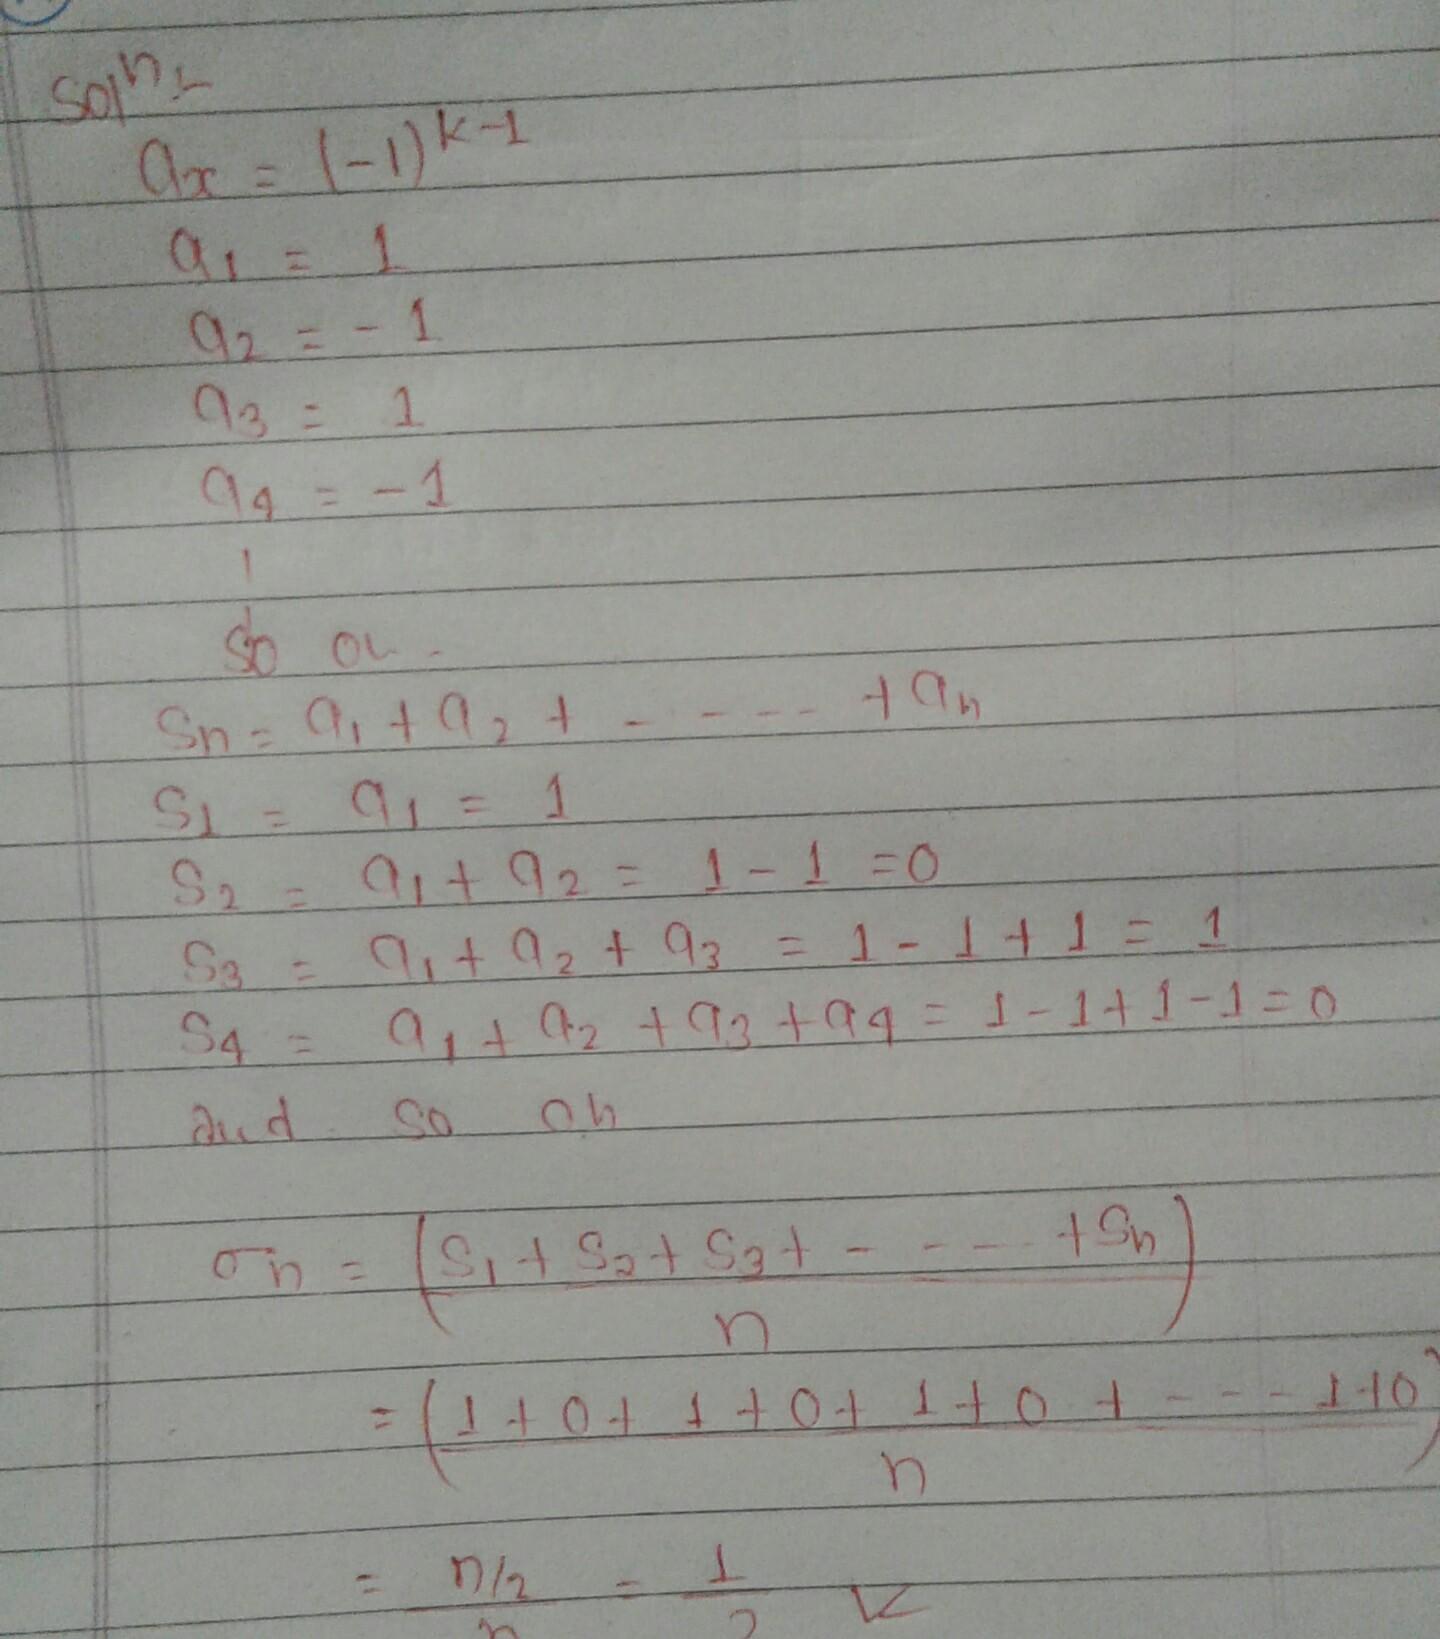 Solⁿ:-
aₓ = (-1)^(k-1)
a₁ = 1
a₂ = -1
a₃ = 1
a₄ = -1
so on.
Sₙ = a₁ + a₂ + ----- + aₙ
S₁ = a₁ = 1
S₂ = a₁ + a₂ = 1 - 1 = 0
S₃ = a₁ + a₂ + a₃ = 1 - 1 + 1 = 1
S₄ = a₁ + a₂ + a₃ + a₄ = 1 - 1 + 1 - 1 = 0
and so on
σₙ = (S₁ + S₂ + S₃ + ----- + Sₙ)
n
= (1 + 0 + 1 + 0 + 1 + 0 + ---- 1 + 0)
n
= n/2 / n = 1/2